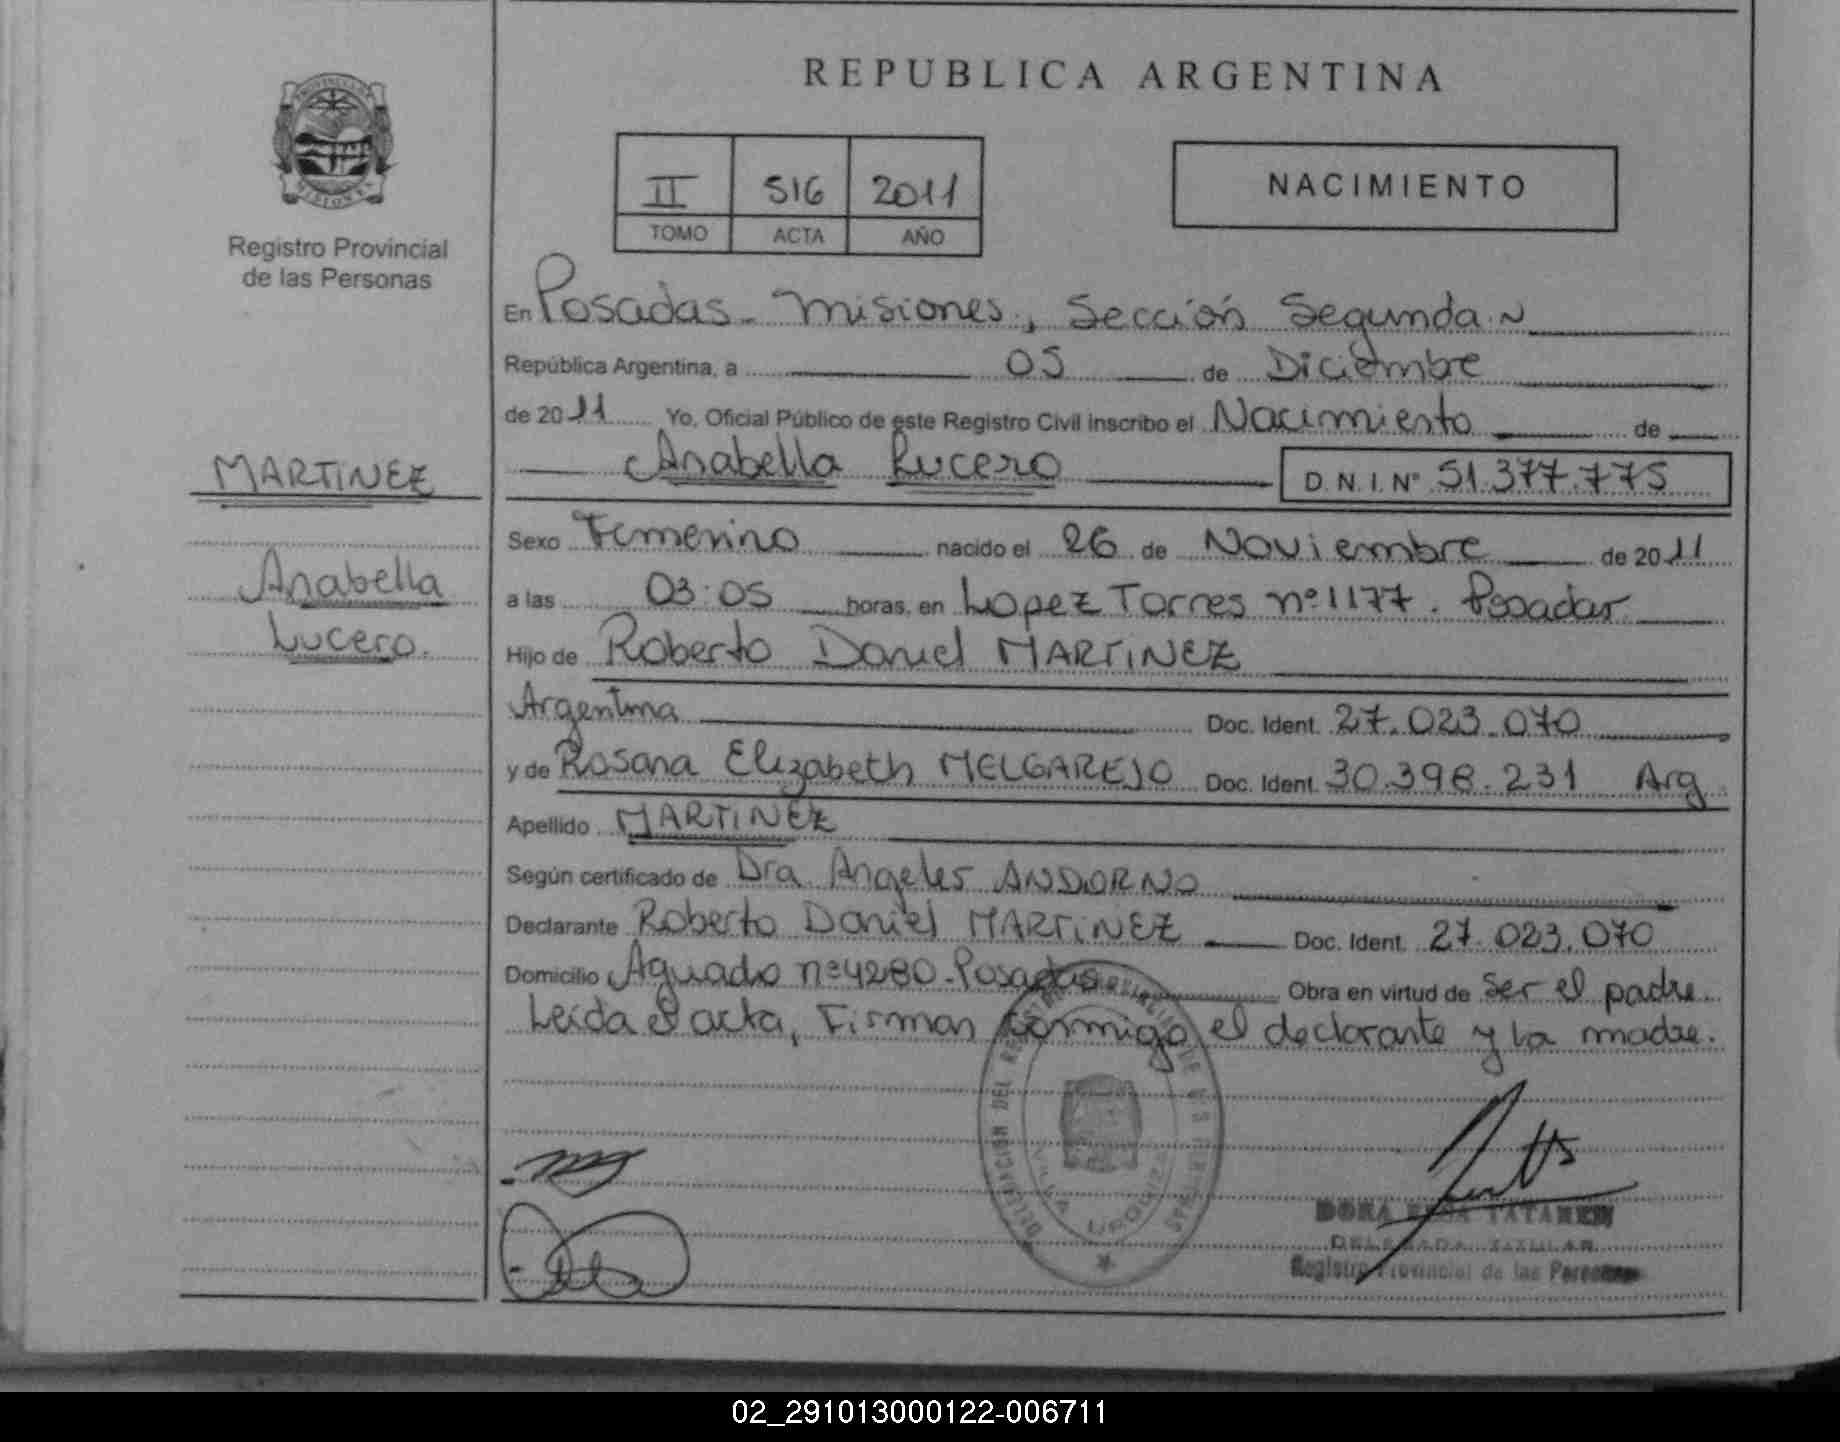 REPUBLICA ARGENTINA
PROVINCIA DE
MISIONES
Registro Provincial
de las Personas
II 516 2011
TOMO ACTA AÑO
NACIMIENTO
En Posadas - Misiones, Sección Segunda
República Argentina, a 05 de Diciembre
de 2011 Yo, Oficial Público de este Registro Civil inscribo el Nacimiento de
Anabella Lucero D.N.I.Nº 51.377.775
MARTINEZ
Anabella
Lucero.
Sexo Femenino nacido el 26 de Noviembre de 2011
a las 03:05 horas, en Lopez Torres nº 1177. Posadas
Hijo de Roberto Daniel MARTINEZ
Argentina Doc. Ident. 27.023.070
y de Rosana Elizabeth MELGAREJO Doc. Ident. 30.398.231 Arg.
Apellido MARTINEZ
Según certificado de Dra. Angeles ANDORNO
Declarante Roberto Daniel MARTINEZ Doc. Ident. 27.023.070
Domicilio Aguado nº 4280 - Posadas Obra en virtud de ser el padre.
Leída el acta, Firman conmigo el declarante y la madre.
DELEGACION DEL REGISTRO PROVINCIAL DE LAS PERSONAS
VILLA URQUIZA
DORA
DELEGADA TITULAR
Registro Provincial de las Personas
02_291013000122-006711